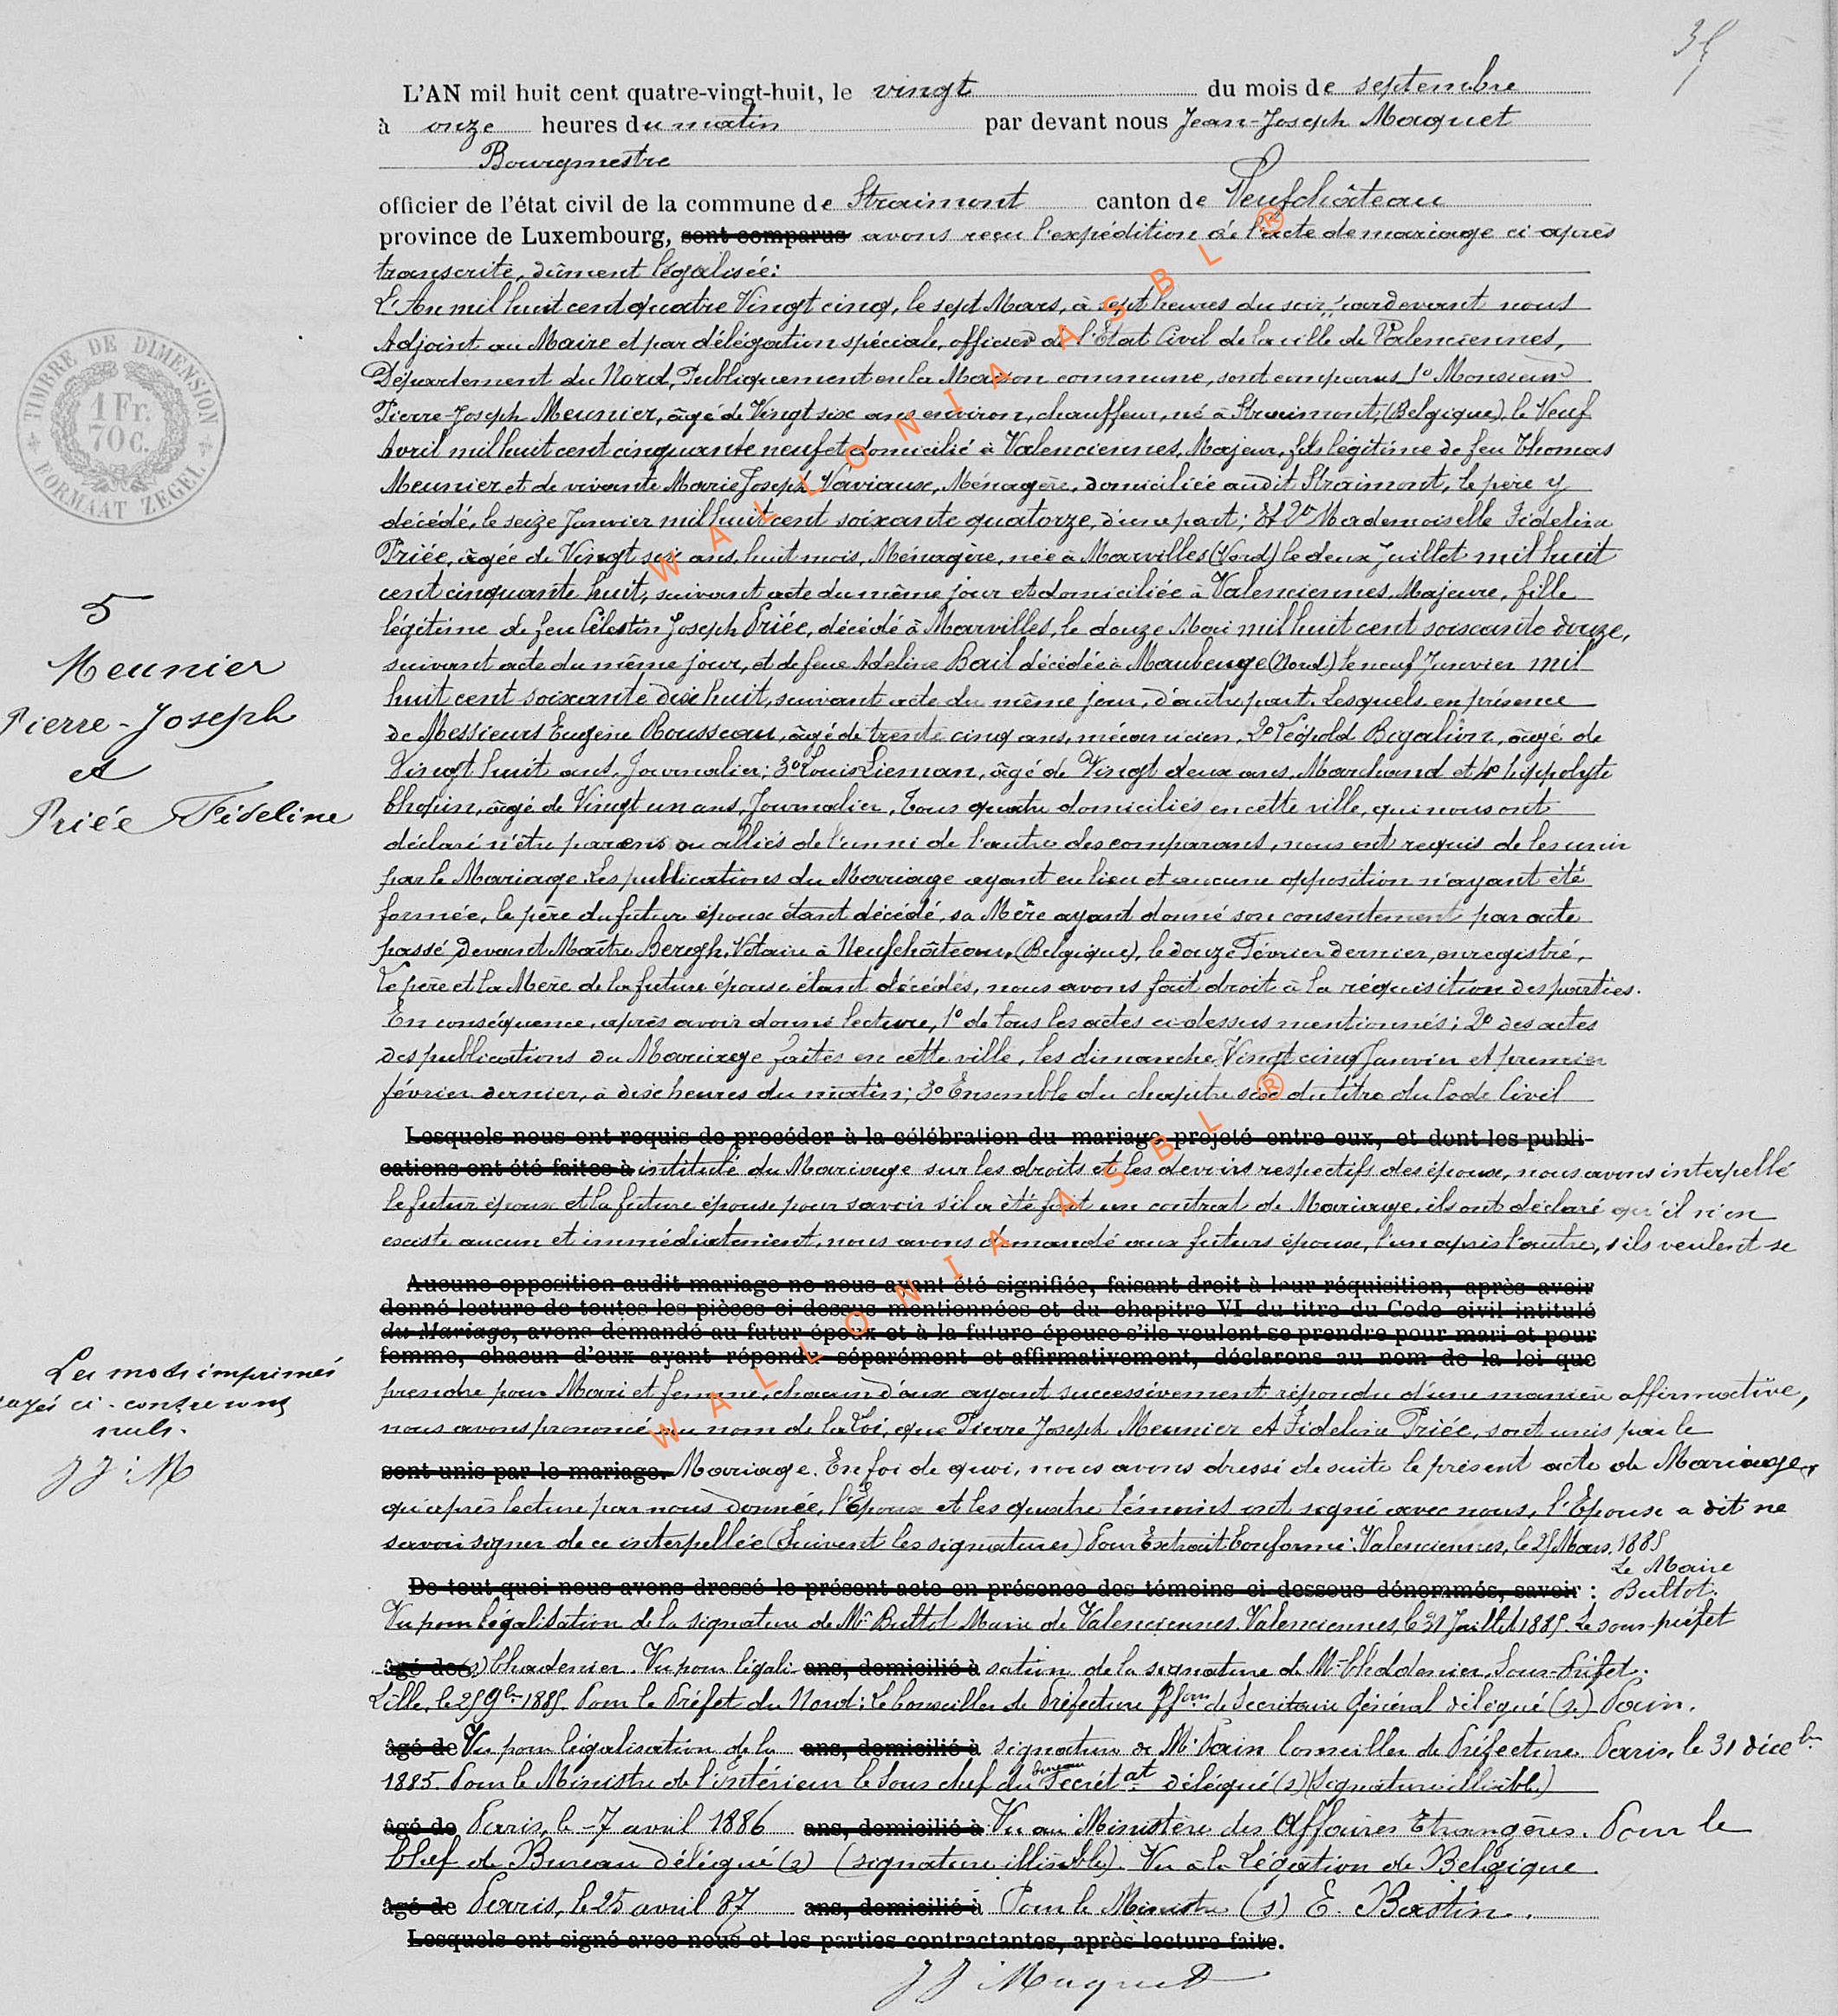 35
L'AN mil huit cent quatre-vingt-huit, le vingt du mois de septembre
à onze heures du matin par devant nous Jean-Joseph Maquet
Bourgmestre
officier de l'état civil de la commune de Straimont canton de Neufchâteau
province de Luxembourg, sont comparus avons reçu l'expédition de l'acte de mariage ci après
transcrite, dûment légalisée:
L'An mil huit cent quatre Vingt cinq, le sept Mars, à sept heures du soir, pardevant nous
Adjoint au Maire et par délégation spéciale, officier de l'Etat Civil de la ville de Valenciennes,
Département du Nord, Publiquement en la Maison commune, sont comparus 1º Monsieur
Pierre-Joseph Meunier, âgé de Vingt six ans environ, chauffeur, né à Straimont, (Belgique), le Neuf
Avril mil huit cent cinquante neuf et domicilié à Valenciennes, Majeur, fils légitime de feu Thomas
Meunier et de vivante Marie Joseph Naviaux, Ménagère, domiciliée audit Straimont, le père y
décédé, le seize Janvier mil huit cent soixante quatorze, d'une part; Et 2º Mademoiselle Fideline
Priée, âgée de Vingt six ans, huit mois, Ménagère, née à Marvilles (Nord) le deux Juillet mil huit
cent cinquante huit, suivant acte du même jour et domiciliée à Valenciennes, Majeure, fille
légitime de feu Célestin Joseph Priée, décédé à Marvilles, le douze Mai mil huit cent soixante douze,
suivant acte du même jour, et de feue Adeline Bail décédée à Maubeuge (Nord) le neuf Janvier mil
huit cent soixante dix huit, suivant acte du même jour, d'autre part. Lesquels, en présence
de Messieurs Eugène Rousseau, âgé de trente cinq ans, mécanicien, 2º Léopold Bigalion, âgé de
Vingt huit ans, Journalier; 3º Louis Lieman, âgé de Vingt deux ans, Marchand et 4º hippolyte
Chopin, âgé de Vingt un ans, Journalier, Tous quatre domiciliés en cette ville, qui nous ont
déclaré n'être parens ou alliés de l'un ni de l'autre des comparans, nous ont requis de les unir
par le Mariage. Les publications du Mariage ayant eu lieu et aucune opposition n'ayant été
formée, le père du futur époux étant décédé, sa Mère ayant donné son consentement par acte
passé devant Maître Bergh, Notaire à Neufchâteau, (Belgique), le douze Février dernier, enregistré,
Le père et la Mère de la future épouse étant décédés, nous avons fait droit à la réquisition des parties.
En conséquence, après avoir donné lecture, 1º de tous les actes ci-dessus mentionnés; 2º des actes
des publications du Mariage faites en cette ville, les dimanche Vingt cinq Janvier et premier
février dernier, à dix heures du matin; 3º Ensemble du chapitre six du titre du Code Civil
Lesquels nous ont requis de procéder à la célébration du mariage projeté entre eux, et dont les publi-
cations ont été faites à intitulé du Mariage sur les droits et les devoirs respectifs des époux, nous avons interpellé
le futur époux et la future épouse pour savoir s'il a été fait un contrat de Mariage, ils ont déclaré qu'il n'en
existe aucun et immédiatement, nous avons demandé aux futurs époux, l'un après l'autre, s'ils veulent se
Aucune opposition audit mariage ne nous ayant été signifiée, faisant droit à leur réquisition, après avoir
donné lecture de toutes les pièces ci-dessus mentionnées et du chapitre VI du titre du Code civil intitulé
du Mariage, avons demandé au futur époux et à la future épouse s'ils veulent se prendre pour mari et pour
femme, chacun d'eux ayant répondu séparément et affirmativement, déclarons au nom de la loi que
prendre pour Mari et femme, chacun d'eux ayant successivement répondu d'une manière affirmative,
nous avons prononcé au nom de la Loi, que Pierre Joseph Meunier et Fideline Priée, sont unis par le
sont unis par le mariage. Mariage. En foi de quoi, nous avons dressé de suite le présent acte de Mariage,
qu'après lecture par nous donnée, l'Epoux et les quatre témoins ont signé avec nous, l'Epouse a dit ne
savoir signer de ce interpellée (Suivent les signatures) Pour Extrait Conforme: Valenciennes, le 25 Mars 1885
Le Maire
De tout quoi nous avons dressé le présent acte en présence des témoins ci-dessous dénommés, savoir : Bultot.
Vu pour légalisation de la signature de Mr Bultot Maire de Valenciennes. Valenciennes, le 31 Juillet 1885. Le sous-préfet
âgé de (s) Chadenier. Vu pour légali- ans, domicilié à sation de la signature de Mr Chadenier, Sous-Préfet.
Lille, le 25 9bre 1885. Pour le Préfet du Nord: Le Conseiller de Préfecture ffons de Secrétaire Général délégué (s.) Pain.
âgé de Vu pour légalisation de la ans, domicilié à signature de Mr Pain Conseiller de Préfecture. Paris, le 31 décebre
1885. Pour le Ministre de l'intérieur le Sous chef du bureau Secrétat délégué (s) (Signature illisible)
âgé de Paris, le 7 avril 1886 ans, domicilié à Vu au Ministère des Affaires Etrangères. Pour le
Chef de Bureau délégué (s) (signature illisible). Vu à la Légation de Belgique
âgé de Paris, le 25 avril 87 ans, domicilié à Pour le Ministre (s) E. Bastin.
Lesquels ont signé avec nous et les parties contractantes, après lecture faite.
JJ Maquet
TIMBRE DE DIMENSION
1 Fr.
70 C.
FORMAAT ZEGEL
5
Meunier
Pierre-Joseph
et
Priée Fideline
Les mots imprimés
rayés ci-contre sont
nuls.
JJ M
WALLONIA ASBL ®
WALLONIA ASBL ®